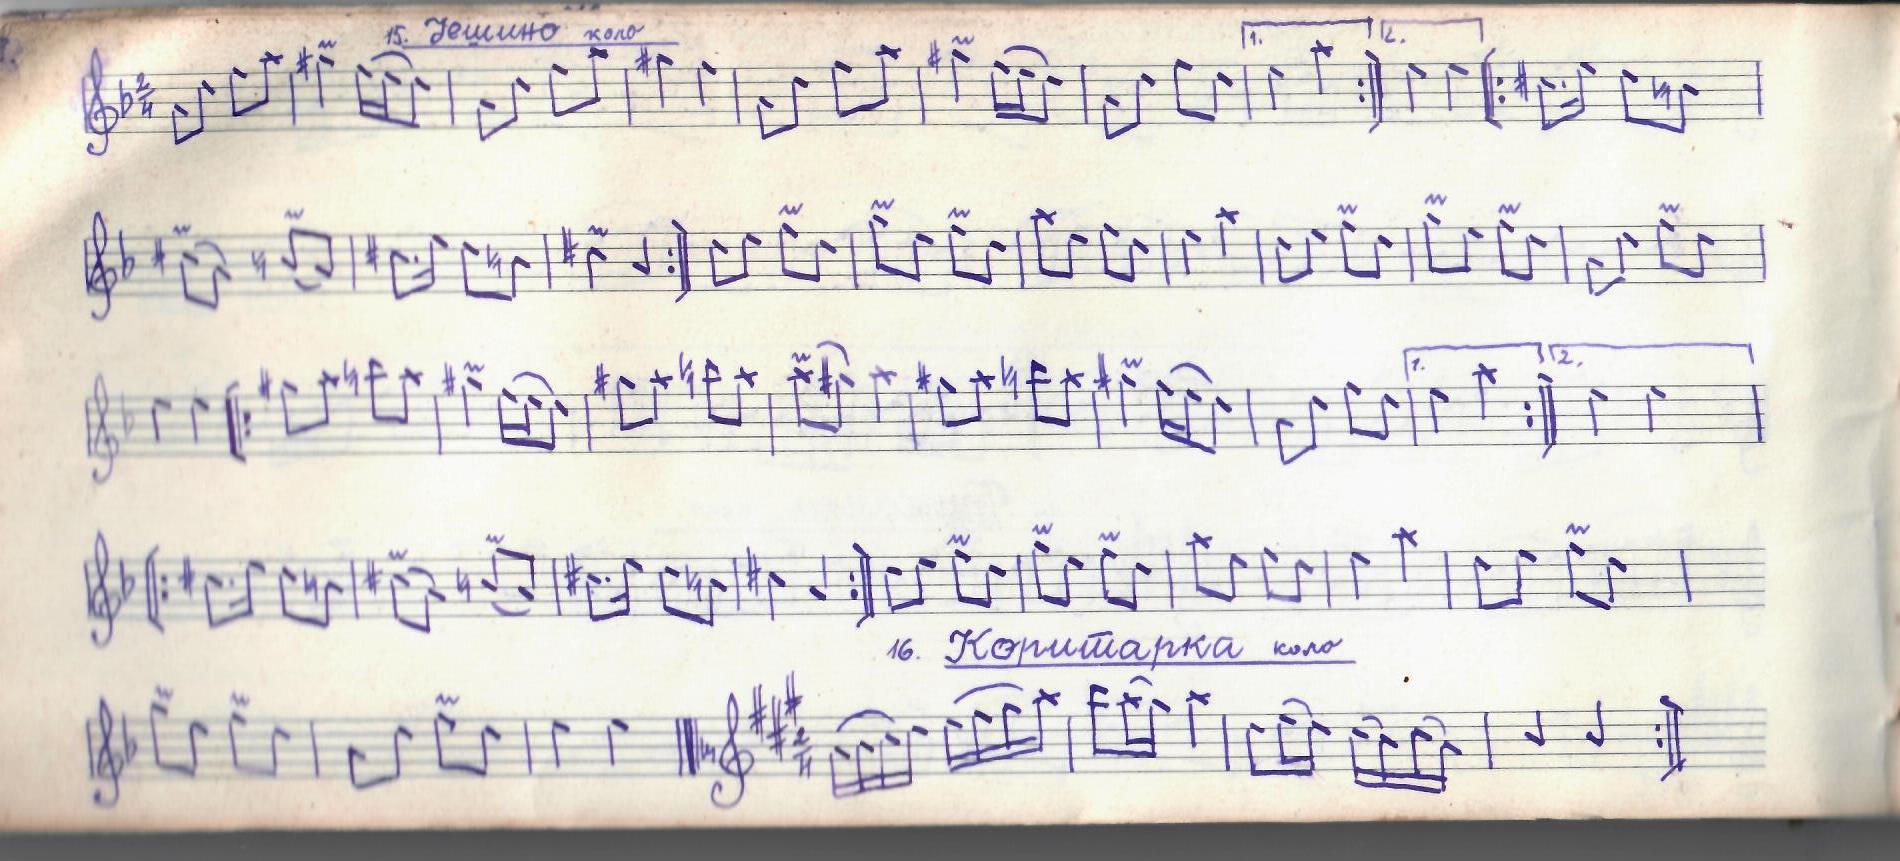 15. Јешино коло
2/4
1. 2.
1. 2.
16. Коритарка коло
2/4